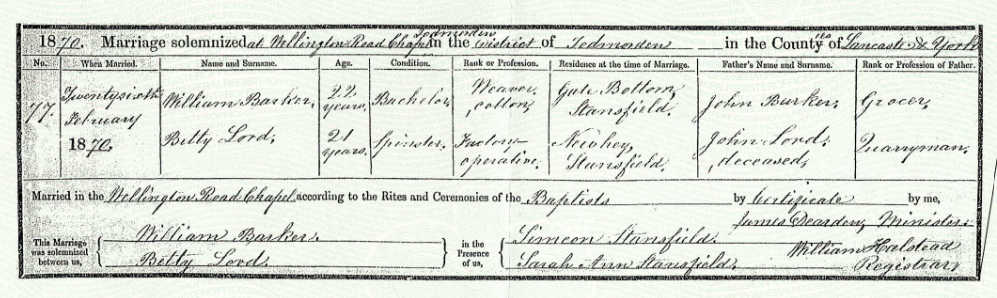 1870. Marriage solemnized at Wellington Road Chapel Todmorden in the District of Todmorden in the Counties of Lancaster & York
No. When Married. Name and Surname. Age. Condition. Rank or Profession. Residence at the time of Marriage. Father's Name and Surname. Rank or Profession of Father.
77. Twenty sixth February 1870. William Barker, 22 years, Bachelor Weaver, cotton, Gate Bottom, Stansfield. John Barker, Grocer,
Betty Lord, 21 years. Spinster. Factory operative. Stansfield. John Lord, deceased, Quarryman.
Married in the Wellington Road Chapel according to the Rites and Ceremonies of the Baptists by Certificate by me,
James Dearden, Minister
This Marriage was solemnized between us, William Barker. Betty Lord. in the Presence of us, Simeon Stansfield. Sarah Ann Stansfield. William Halstead Registrar